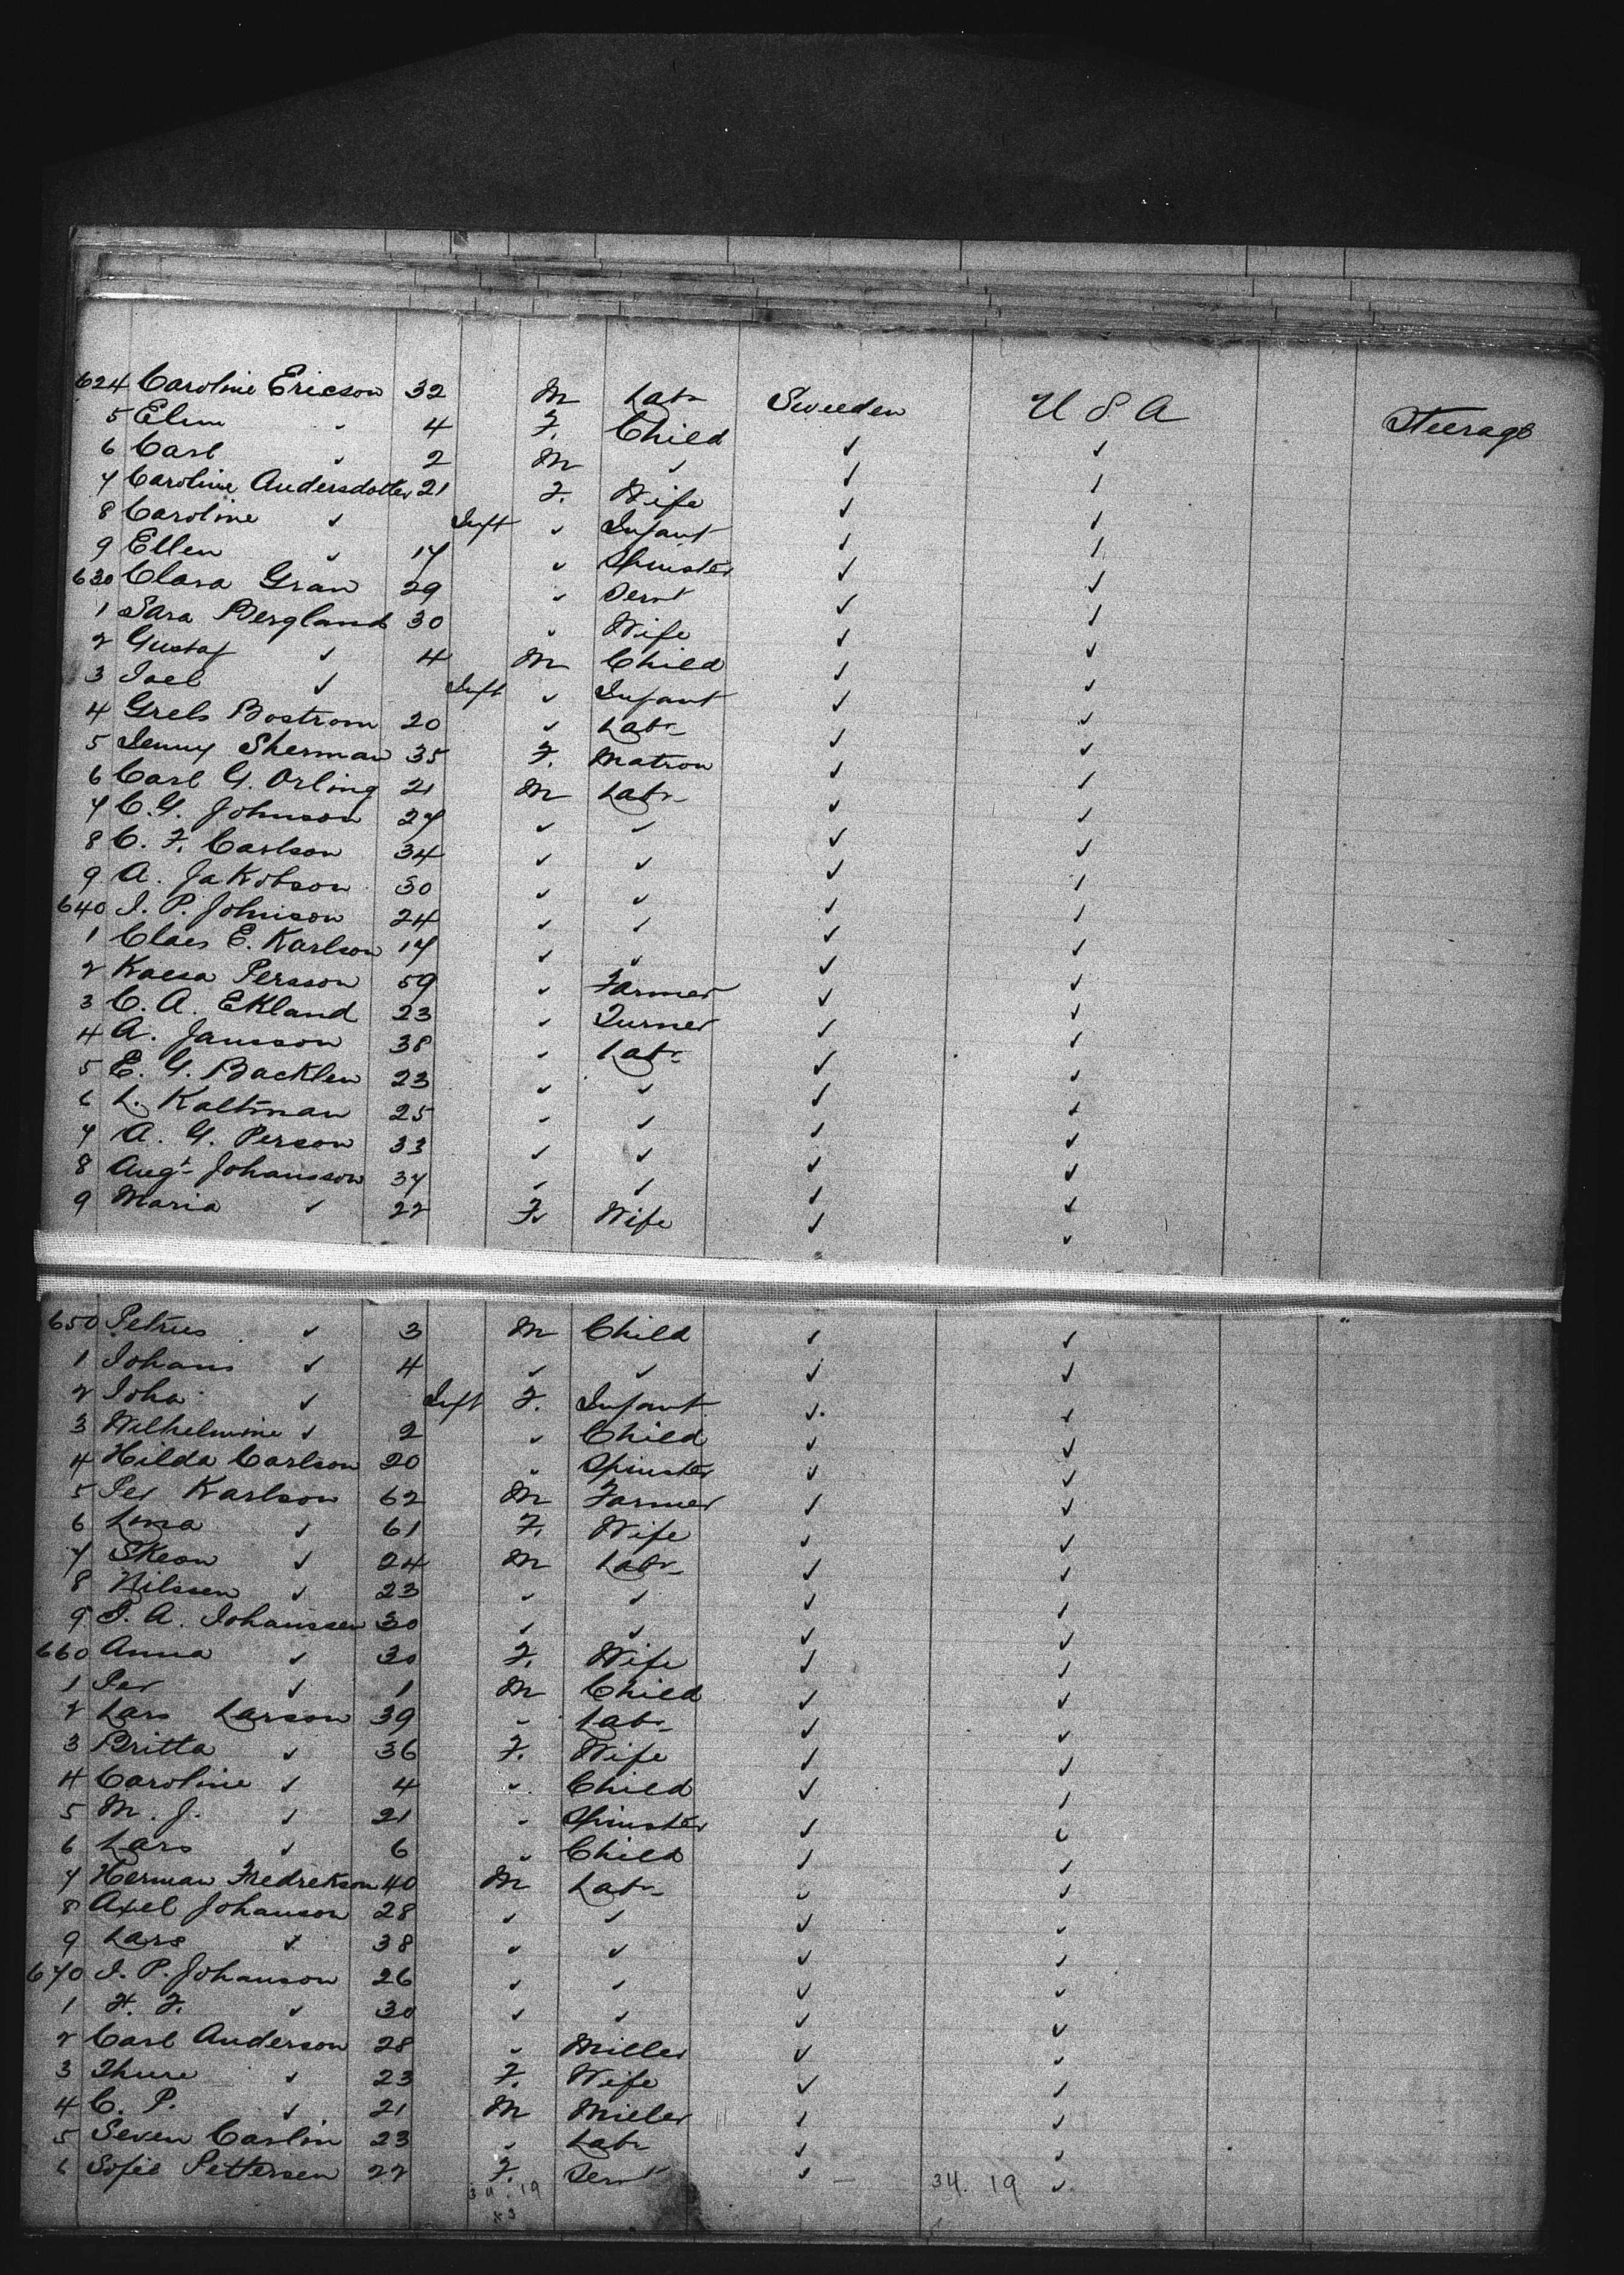 624 Caroline Ericson 32 M Labr Sweeden U S A Steerage
5 Elin " 4 F. Child " "
6 Carl " 2 M " " "
7 Caroline Andersdotter 21 F. Wife " "
8 Caroline " Inft " Infant " "
9 Ellen " 17 " Spinster " "
630 Clara Gran 29 " Servt " "
1 Sara Bergland 30 " Wife " "
2 Gustaf " 4 M Child " "
3 Joel " Inft " Infant " "
4 Grels Bostrom 20 " Labr " "
5 Jenny Sherman 35 F. Matron " "
6 Carl G. Orling 21 M Labr " "
7 C. G. Johnson 27 " " " "
8 C. F. Carlson 34 " " " "
9 A. Jakobson 30 " " " "
640 I. P. Johnson 24 " " " "
1 Claes E. Karlson 17 " " " "
2 Kaesa Persson 59 " Farmer " "
3 C. A. Ekland 23 " Turner " "
4 A. Jansson 38 " Labr " "
5 E. G. Backlen 23 " " " "
6 L. Kaltman 25 " " " "
7 A. G. Person 33 " " " "
8 Augt Johansson 37 " " " "
9 Maria " 22 F. Wife " "
650 Petrus " 3 M Child " "
1 Johans " 4 " " " "
2 Joha " Inft F. Infant " "
3 Wilhelmine " 2 " Child " "
4 Hilda Carlson 20 " Spinster " "
5 Per Karlson 62 M Farmer " "
6 Lena " 61 F. Wife " "
7 Skeon " 24 M Labr " "
8 Nilssen " 23 " " " "
9 I. A. Johanssen 30 " " " "
660 Anna " 30 F. Wife " "
1 Per " 1 M Child " "
2 Lars Larson 39 " Labr " "
3 Britta " 36 F. Wife " "
4 Caroline " 4 " Child " "
5 M. J. " 21 " Spinster " "
6 Lars " 6 " Child " "
7 Herman Fredrekson 40 M Labr " "
8 Axel Johanson 28 " " " "
9 Lars " 38 " " " "
670 I. P. Johanson 26 " " " "
1 F. F. " 30 " " " "
2 Carl Anderson 28 " Miller " "
3 Thure " 23 F. Wife " "
4 C. P. " 21 M Miller " "
5 Seven Carlin 23 " Labr " "
6 Sofie Pettersen 22 F. Servt " "
34. 19 34. 19